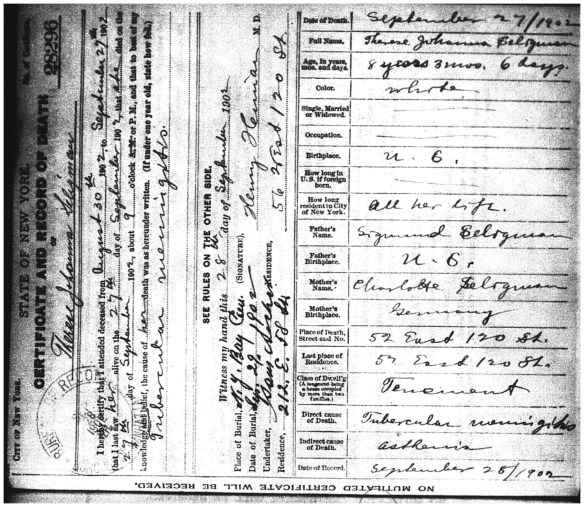 STATE OF NEW YORK.
CITY OF NEW YORK.
No. of Certificate,
CERTIFICATE AND RECORD OF DEATH
28296
OF
Johanna
I hereby certify that I attended deceased from August 30th 1902, to September 27th 1902,
that I last saw her alive on the 27th day of September 1902, that she died on the
27th day of September 1902, about 9 o'clock A.M. or P.M., and that to the best of my
knowledge and belief, the cause of her death was as hereunder written. (If under one year old, state how fed.)
Tubercular meningitis
SEE RULES ON THE OTHER SIDE.
Witness my hand this 28th day of September 1902
Place of Burial, Bay Cem. (SIGNATURE), Henry M. D.
Date of Burial, 1902 RESIDENCE, 56 West 120 St
Undertaker,
Residence, 212 E. St
Date of Death. September 27/1902
Full Name. Therese Johanna
Age, in years, mos. and days. 8 years 3 mos. 6 days.
Color. white
Single, Married or Widowed.
Occupation.
Birthplace. U. S.
How long in U. S. if foreign born.
How long resident in City of New York. all her life
Father's Name. Sigmund
Father's Birthplace. U. S.
Mother's Name. Charlotte
Mother's Birthplace. Germany
Place of Death, Street and No. 52 East 120 St.
Last place of Residence. 52 East 120 St.
Class of Dwell'g (A tenement being a house occupied by more than two families.) Tenement
Direct cause of Death. Tubercular meningitis
Indirect cause of Death. asthenia
Date of Record. September 28/1902
NO MUTILATED CERTIFICATE WILL BE RECEIVED.